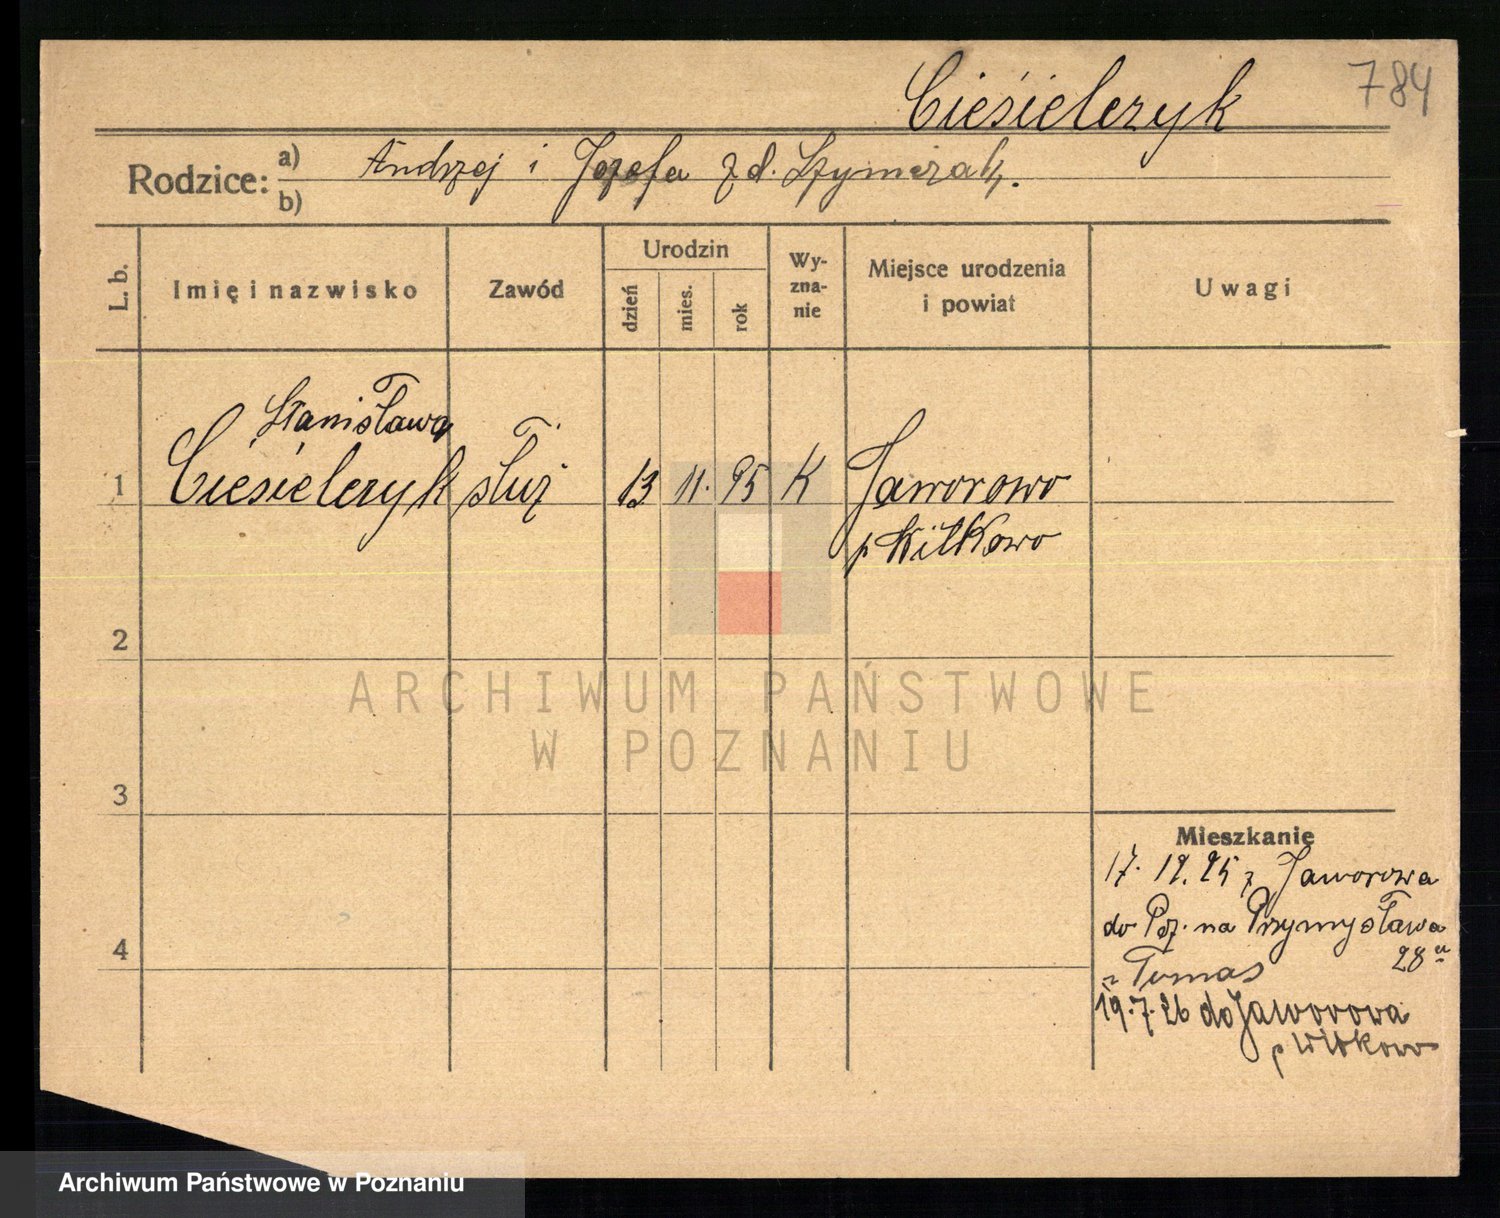 784
Ciesielczyk
Rodzice: a) Andrzej i Jozefa z d. Szymczak.
b)
L. b. Imię i nazwisko Zawód Urodzin dzień mies. rok Wy-zna-nie Miejsce urodzenia i powiat Uwagi
Stanisława
1 Ciesielczyk służ 13 11. 95 K Jaworowo
p Witkowo
2
3
4
Mieszkanie
17. 12. 25 z Jaworowa
do Poz. na Przymysława
28 u
Tomas
19.7.26 do Jaworowa
p Witkowo
ARCHIWUM PAŃSTWOWE
W POZNANIU
Archiwum Państwowe w Poznaniu